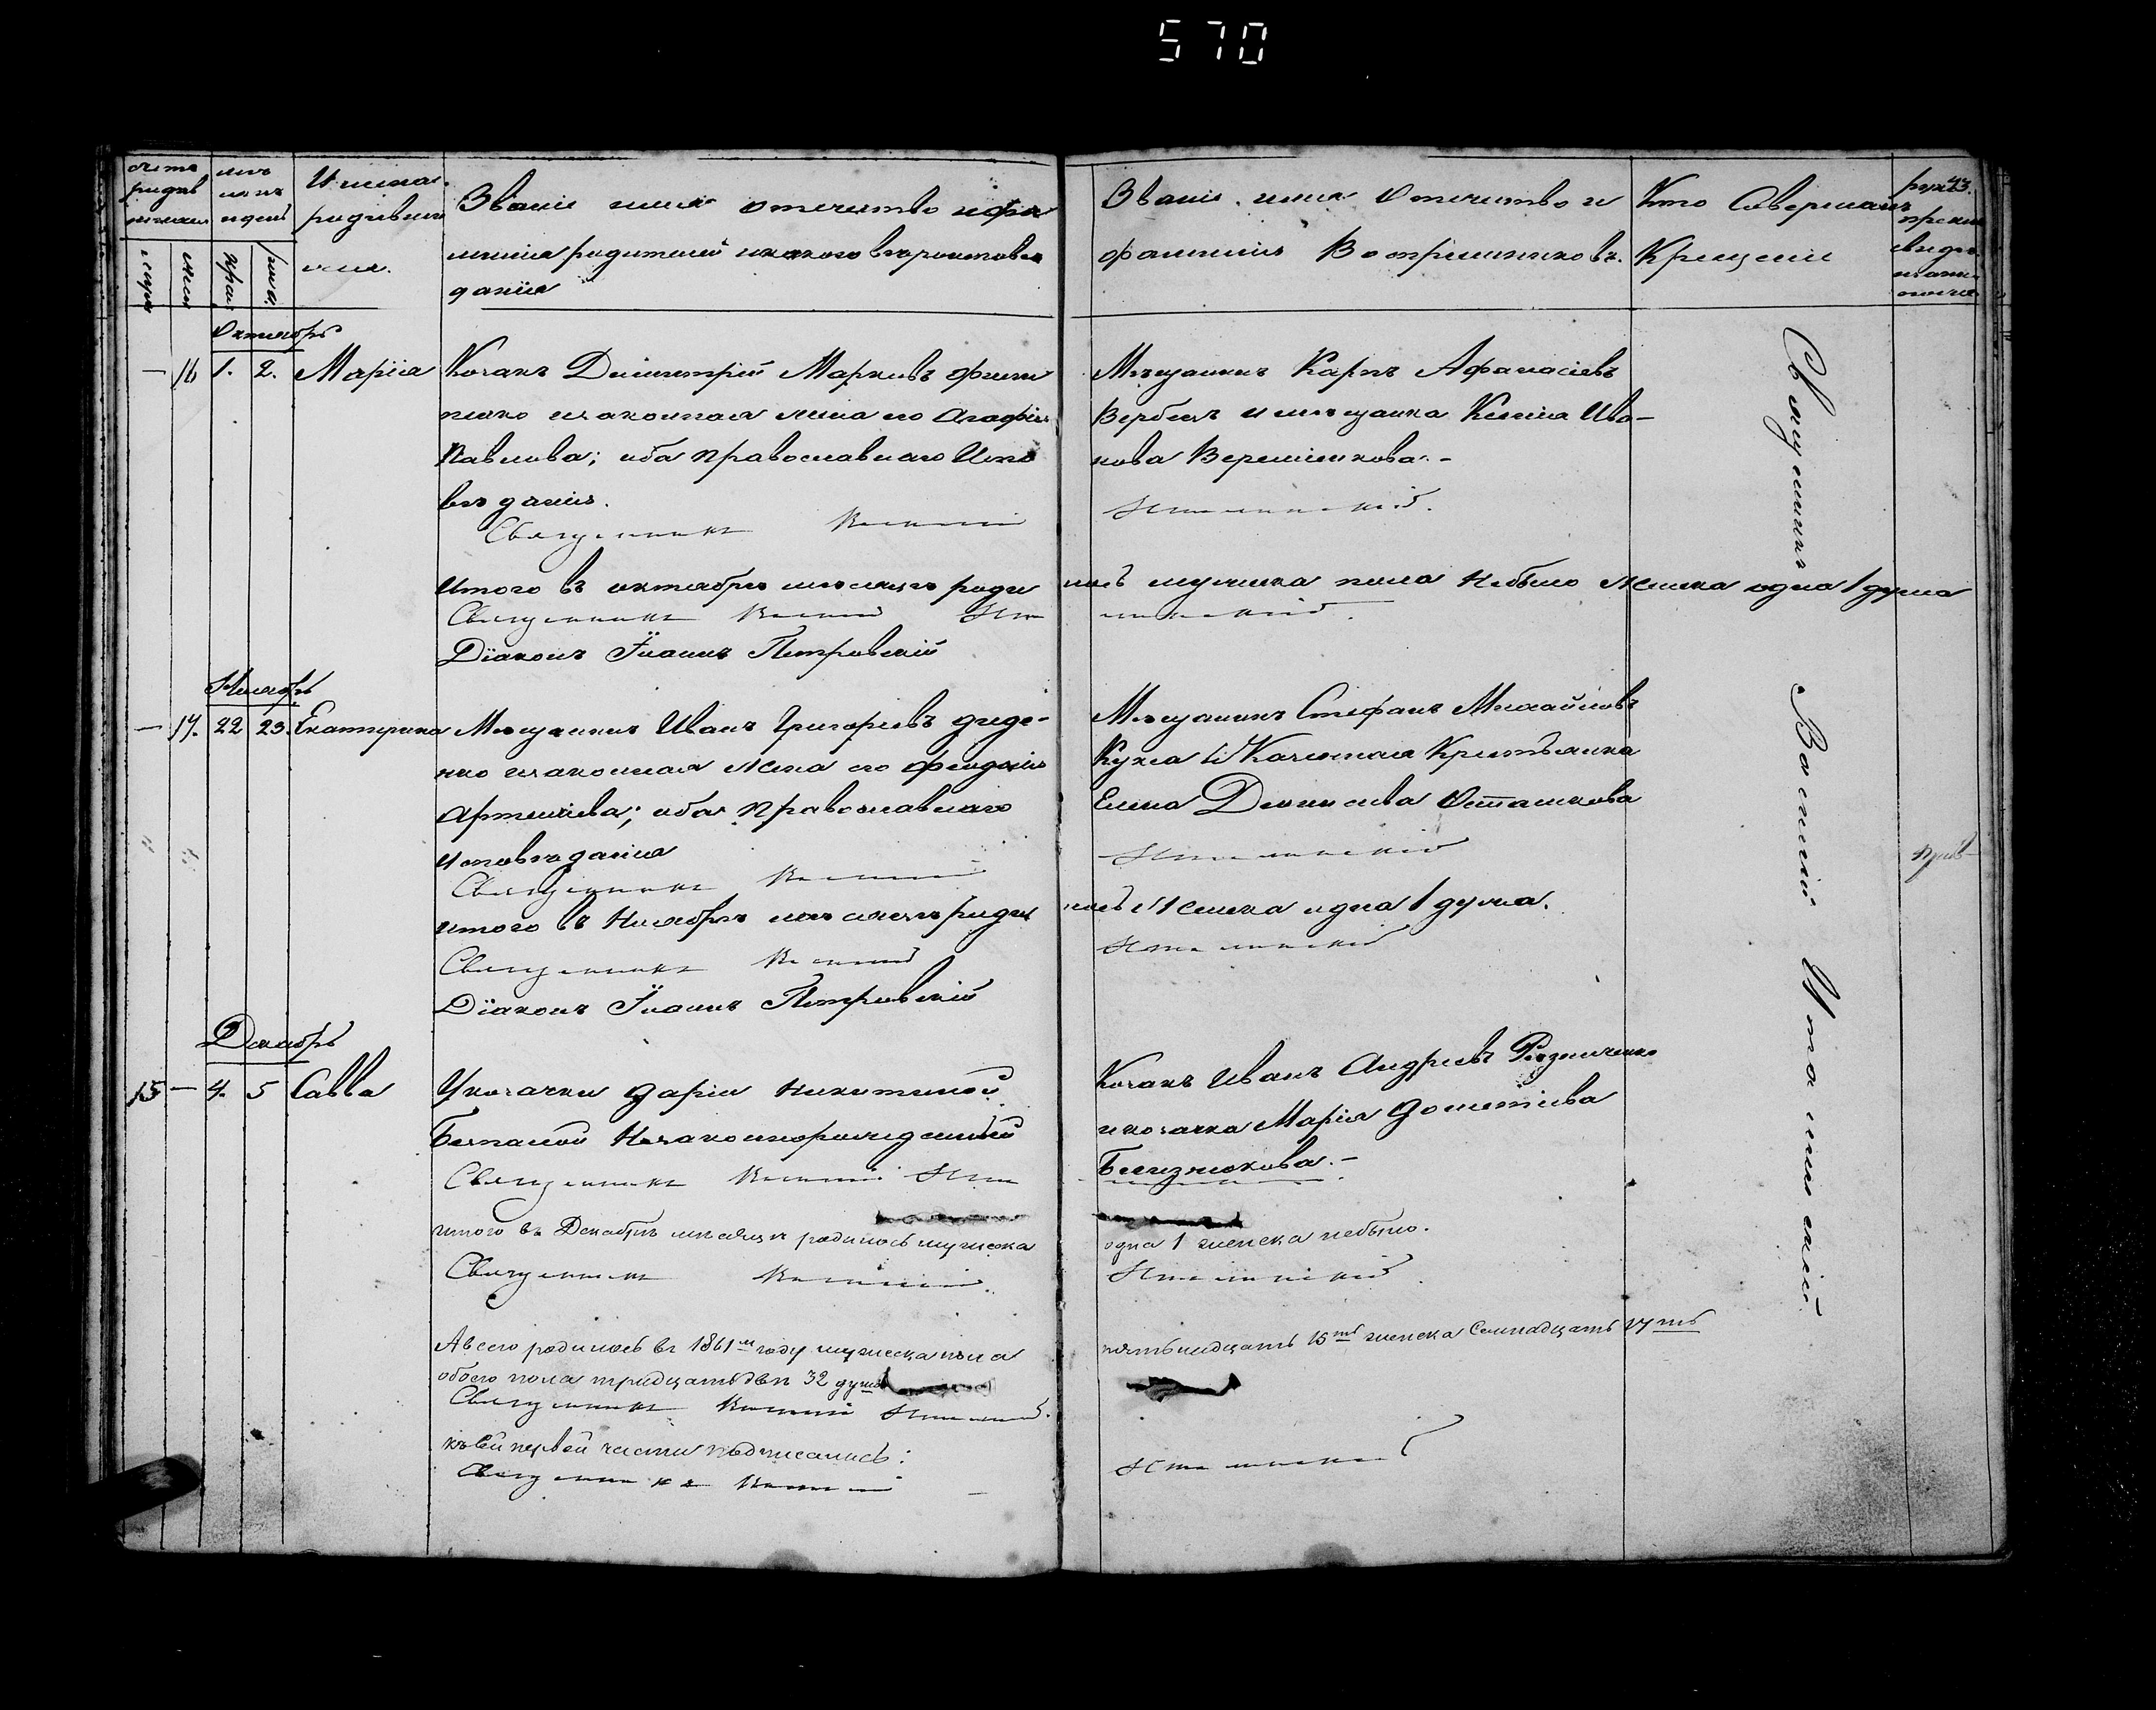 570
43.
Счетъ родившихся
Мѣсяцъ и день
Имена родившихся.
Званіе имя отечество и фамилія родителей и какого вѣроисповѣданія
Званіе имя Отечество и фамилія Воспріемниковъ.
Кто Совершалъ Крещеніе
Октябрь
— 16 1. 2. Марія
Козакъ Димитрій Марковъ
и законная жена его Агафія
Павлова; оба Православнаго Испо
вѣданія.
Священникъ Василій
Мѣщанинъ Карпъ Афанасіевъ
Вербецъ и мѣщанка Ксенія Ива-
нова Верещакова.-
Итого въ октябрѣ мѣсяцѣ роди лось мужеска пола небыло женска одна 1 душа
Священникъ Василій
Діаконъ Іоаннъ Петровскій
Ноябрь
— 17. 22 23. Екатерина
Мѣщанинъ Иванъ Григорьевъ Диде-
нко и законная жена его Феодосія
Артемьева; оба Православнаго
исповѣданія
Священникъ Василій
Мѣщанинъ Стефанъ Михайловъ
Кухса и Казенная Крестьянка
Елена Денисова Осташкова
итого въ Ноябрѣ мѣсяцѣ роди лось женска одна 1 душа.
Священникъ Василій
Діаконъ Іоаннъ Петровскій
Декабрь
15 — 4. 5 Савва
У козачки Даріи Никитиной
Безпалой Незаконнорожденный
Священникъ Василій
Козакъ Иванъ Андреевъ
и козачка Марія Дометіева
Белизнюкова.-
итого въ Декабрѣ мѣсяцѣ родилось мужеска одна 1 женска небыло.
Священникъ Василій
А всего родилось въ 1861м году мужеска пола пятьнадцать 15ть женска Семнадцать 17ть
обоего пола тридцать двѣ 32 душъ
Священникъ Василій
къ сей первой части подписались:
Священникъ Василій
Священникъ Василій